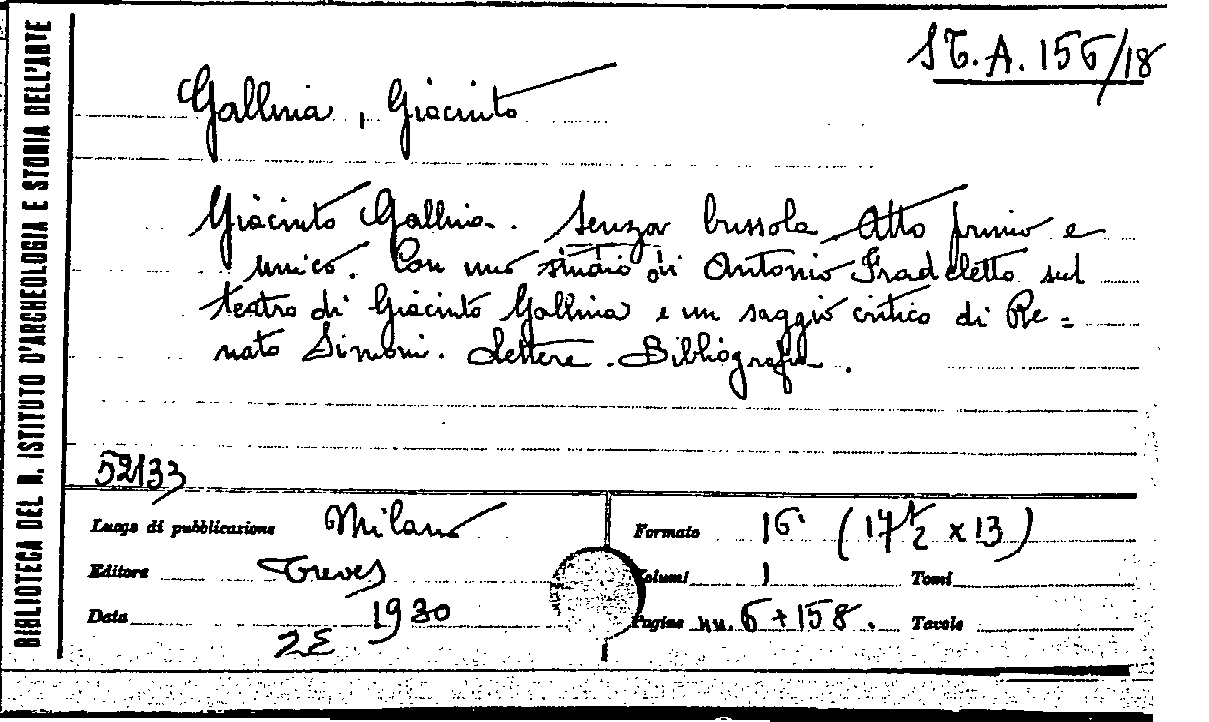 BIBLIOTECA DEL R. ISTITUTO D'ARCHEOLOGIA E STORIA DELL'ARTE
ST. A. 156/18
Gallina, Giacinto
Giacinto Gallina. Senza bussola Atto primo e
unico. Con uno studio di Antonio Fradeletto sul
teatro di Giacinto Gallina e un saggio critico di Re=
nato Simoni. Lettere. Bibliografia.
52133
Luogo di pubblicazione Milano
Formato 16° (17 1/2 x 13)
Editore Treves
Volumi 1 Tomi
Data 1930
Pagine nn. 6 + 158. Tavole